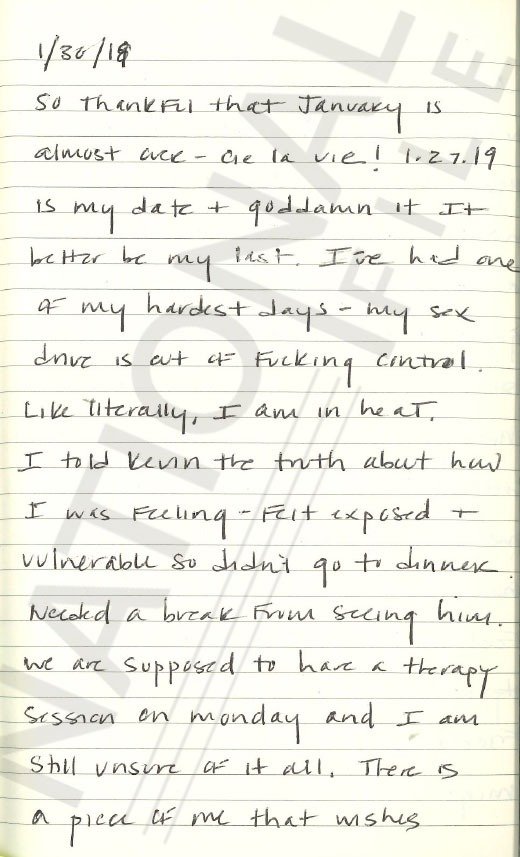 1/30/19
So thankful that January is
almost over - cie la vie! 1.27.19
is my date + goddamn it It
better be my last. I've had one
of my hardest days - my sex
drive is out of fucking control.
Like literally, I am in heat.
I told Kevin the truth about how
I was feeling - felt exposed +
vulnerable so didn't go to dinner.
Needed a break from seeing him.
We are supposed to have a therapy
session on monday and I am
still unsure of it all. There is
a piece of me that wishes
NATIONAL
FILE